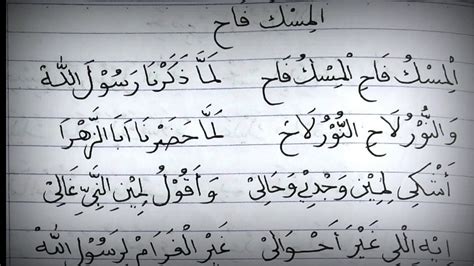 الْمِسْكُ فَاحْ
الْمِسْكُ فَاحِ الْمِسْكُ فَاحْ لَمَّا ذَكَرْنَا رَسُوْلَ اللّٰهْ
وَالنُّوْرُ لَاحِ النُّوْرُ لَاحْ لَمَّا حَضَرْنَا اَبَا الزَّهْرَا
أَشْكِى لِمِيْنِ وَجْدِيْ وَحَالِيْ وَأَقُوْلُ لِمِيْنِ النَّبِيِّ غَالِيْ
اِيْهِ اللِّي غَيَّرَ اَحْوَالِيْ غَيْرَ الْغَرَامْ لِرَسُوْلِ اللّٰهْ